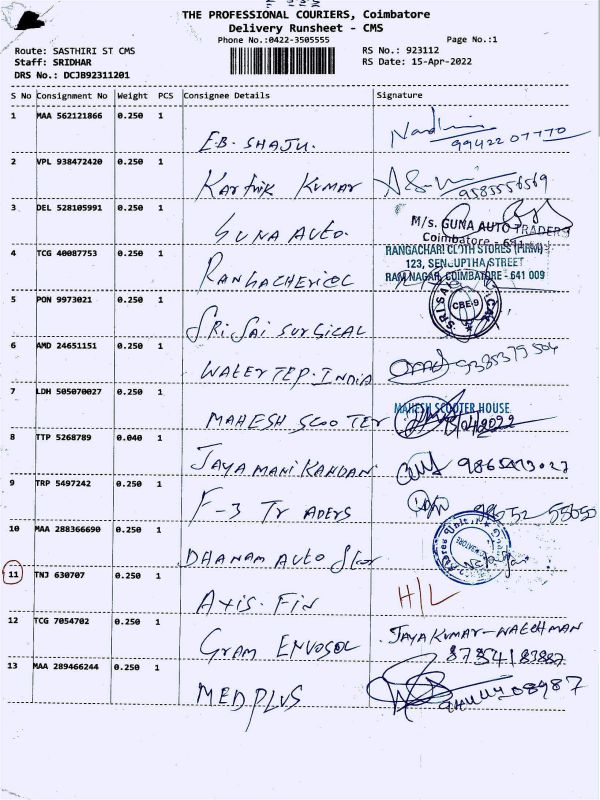 THE PROFESSIONAL COURIERS, Coimbatore
Delivery Runsheet - CMS
Phone No.:0422-3505555
Page No.:1
Route: SASTHIRI ST CMS
RS No.: 923112
Staff: SRIDHAR
RS Date: 15-Apr-2022
DRS No.: DCJB92311201
S No Consignment No Weight PCS Consignee Details Signature
1 MAA 562121866 0.250 1 E.B. SHAJU. 99422 07770
2 VPL 938472420 0.250 1 Karthik Kumar 9585556569
3 DEL 528105991 0.250 1 GUNA AUTO.
M/s. GUNA AUTO TRADERS
Coimbatore - 641
4 TCG 40087753 0.250 1
RANGACHARI CLOTH STORES (FIRM)
123, SENGUPTHA STREET
RAM NAGAR, COIMBATORE - 641 009
5 PON 9973021 0.250 1 SRI SAI SURGICAL
CBE-9
6 AMD 24651151 0.250 1 WATER TEP. INDIA
7 LDH 505070027 0.250 1 MAHESH SCOOTER
MAHESH SCOOTER HOUSE
8 TTP 5268789 0.040 1 JAYAMANIKANDAN
9 TRP 5497242 0.250 1 F-3 TRADERS
10 MAA 288366690 0.250 1 DHANAM AUTO Stor
11 TNJ 630707 0.250 1 AXIS. FIN H/L
12 TCG 7054702 0.250 1 GRAM JAYAKUMAR-WATCHMAN
13 MAA 289466244 0.250 1 MEDPLUS